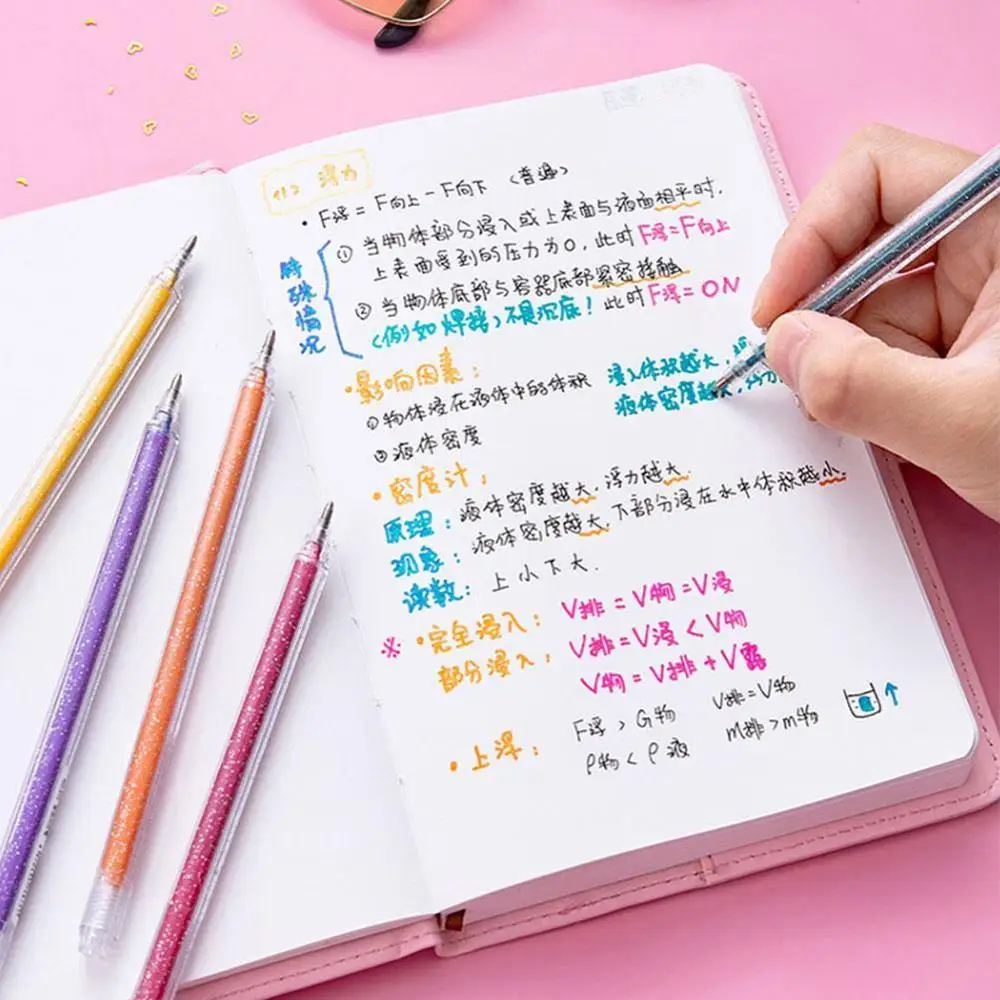 浮力
• F浮 = F向上 - F向下 (普遍)
特殊情况
① 当物体部分浸入或上表面与液面相平时.
上表面受到的压力为0, 此时F浮=F向上
② 当物体底部与容器底部紧密接触
(例如焊接)不是沉底! 此时F浮=0N
• 影响因素:
①物体浸在液体中的体积
②液体密度
浸入体积越大,
液体密度越大,浮力
• 密度计:
原理: 液体密度越大.浮力越大.
现象: 液体密度越大.下部分浸在水中体积越小.
读数: 上小下大.
※ • 完全浸入: V排 = V物 = V浸
部分浸入: V排 = V浸 < V物
V物 = V排 + V露
• 上浮: F浮 > G物 V排=V物
ρ物 < ρ液 m排>m物